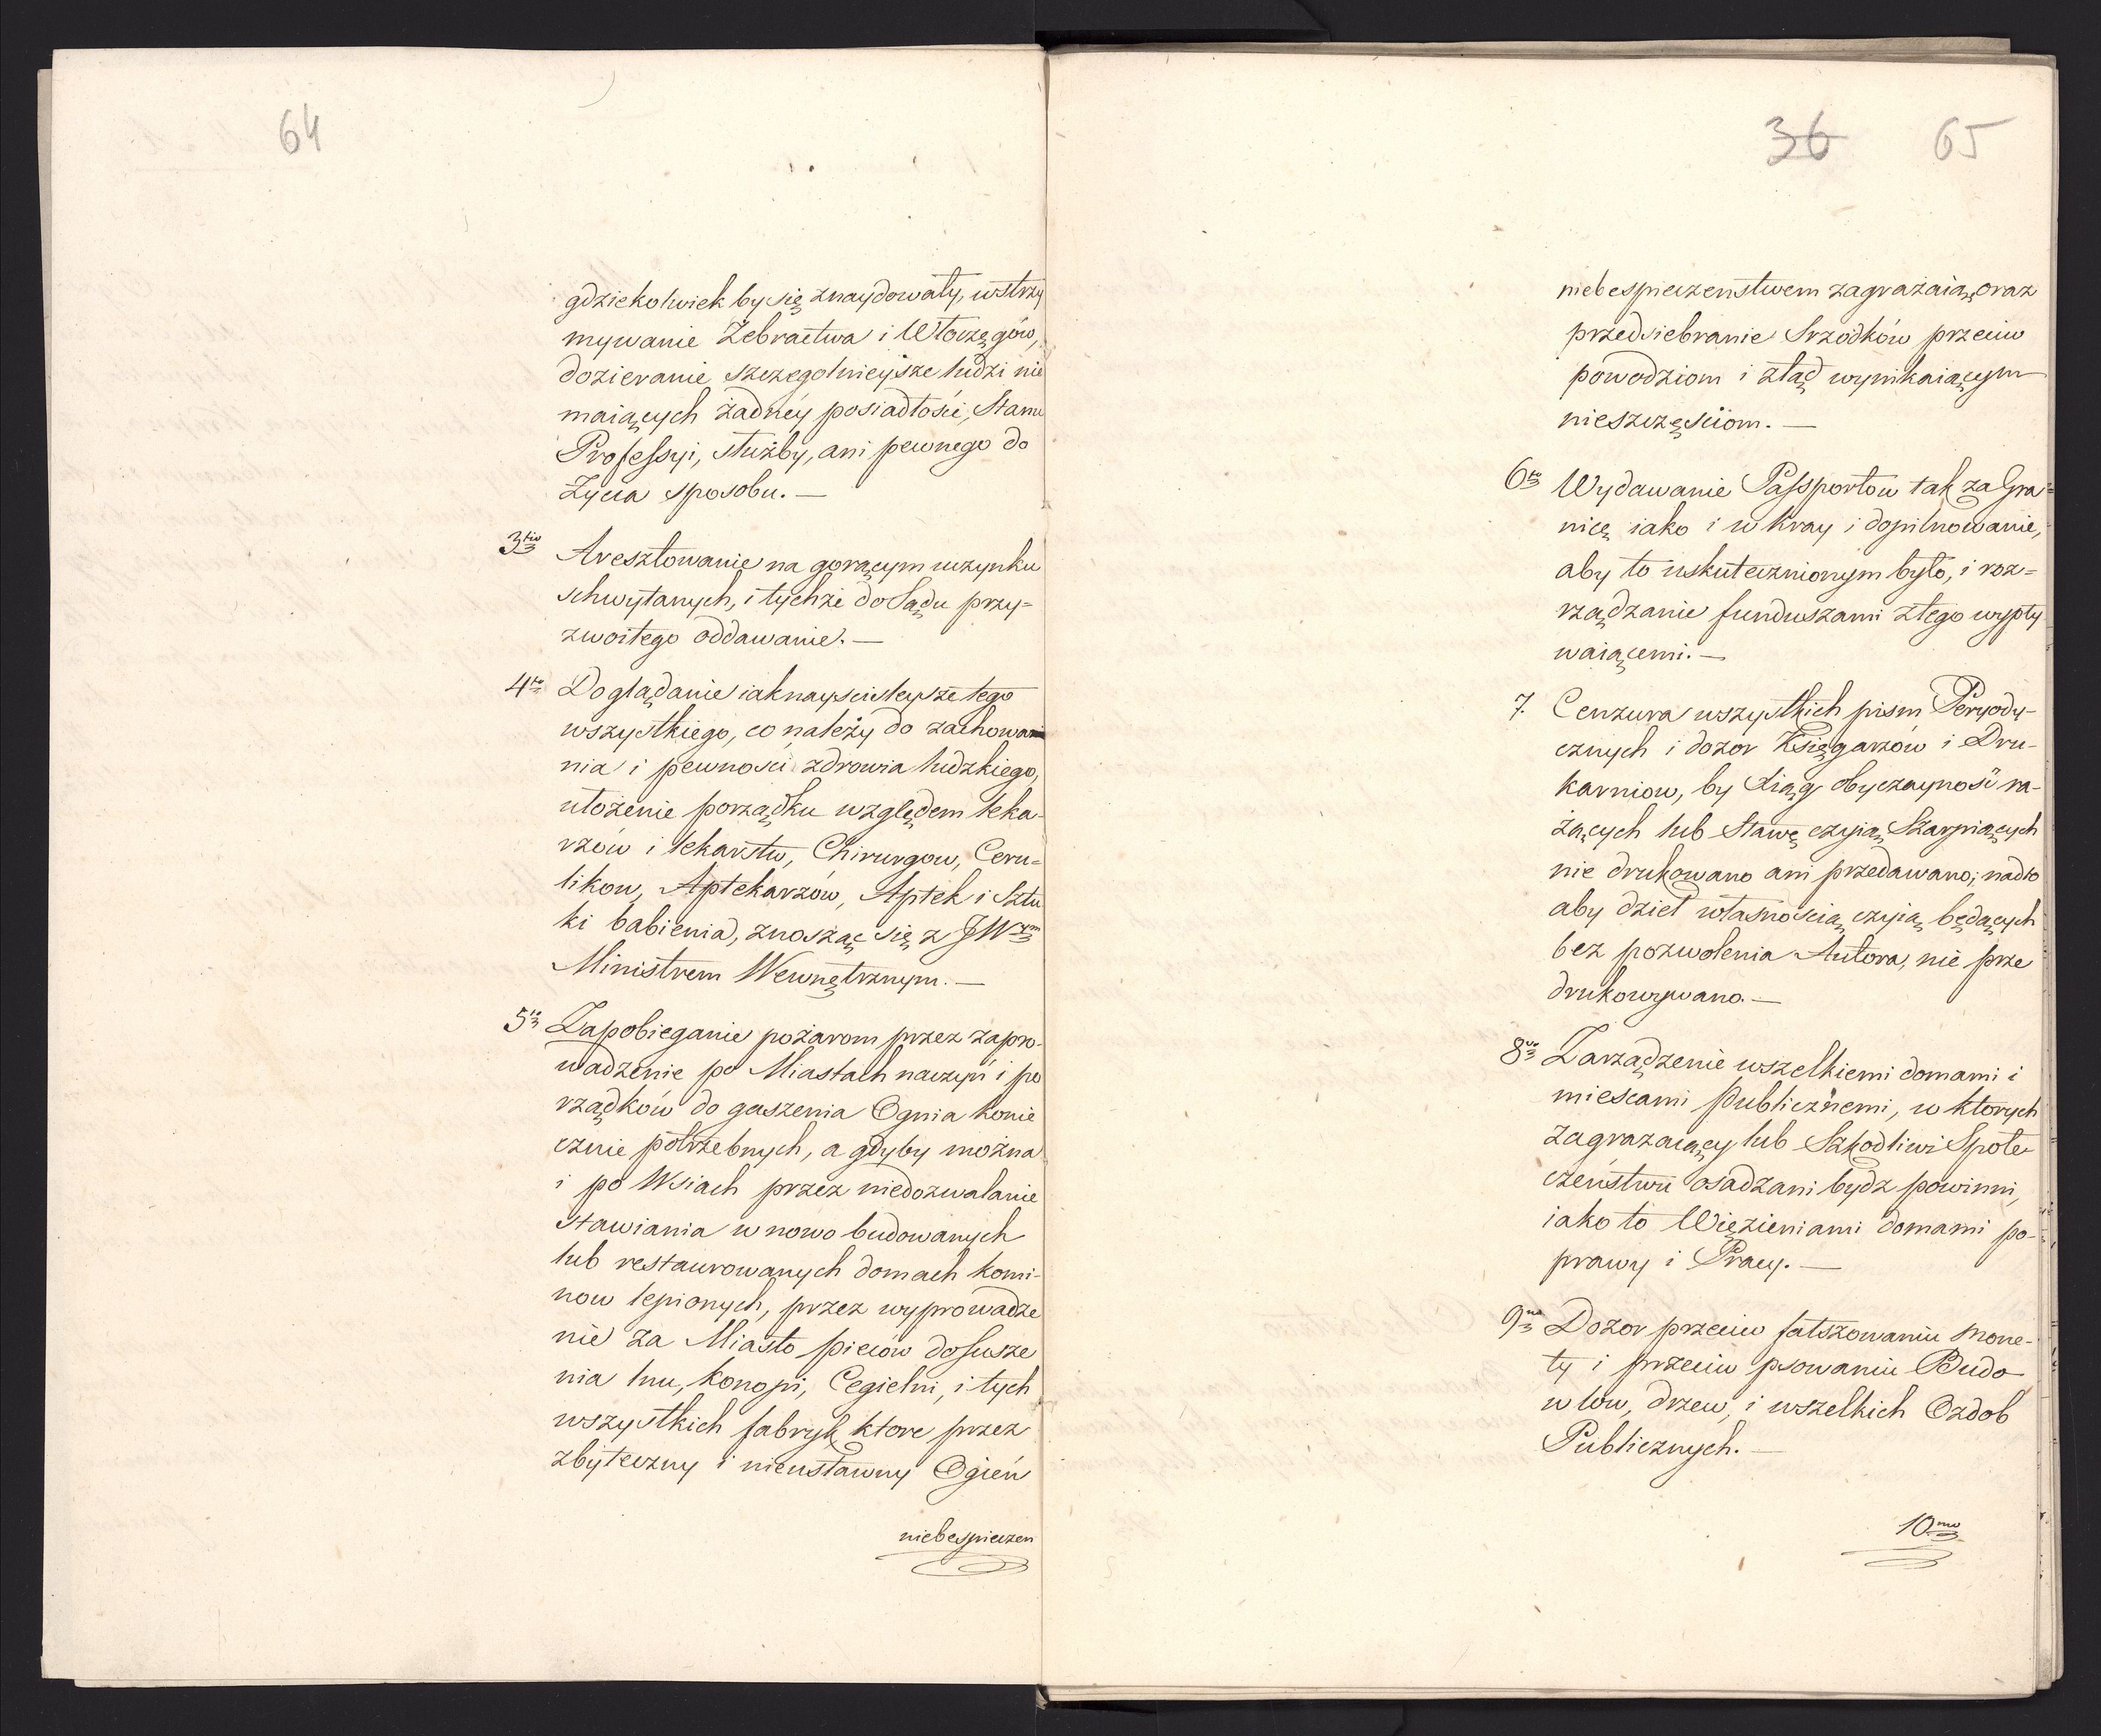 64
gdziekolwiek by się znaydowały, wstrzy
mywanie Żebractwa i Włoczęgów,
dozieranie szczegolnieysze ludzi nie
maiących żadney posiadłości, Stanu
Professyi, służby, ani pewnego do
Życia sposobu. —
3tio Aresztowanie na gorącym uczynku
schwytanych, i tychże do Sądu przy=
zwoitego oddawanie. —
4to Doglądanie iaknayściśleysze tego
wszystkiego, co należy do zachowa
nia i pewności zdrowia ludzkiego,
ułożenie porządku względem leka-
rzów i lekarstw, Chirurgow, Ceru=
likow, Aptekarzów, Aptek i Sztu
ki babienia, znosząc się z JWym
Ministrem Wewnętrznym. —
5to Zapobieganie pożarom przez zapro-
wadzenie po Miastach naczyń i po
rządków do gaszenia Ognia konie
cznie potrzebnych, a gdyby można
i po Wsiach przez niedozwalanie
stawiania w nowo budowanych
lub restaurowanych domach komi-
now lepionych, przez wyprowadze
nie za Miasto pieców do susze
nia lnu, konopi, Cegielni, i tych
wszystkich fabryk ktore przez
zbyteczny i nieustawny Ogień
niebespieczen
36 65
niebespieczenstwem zagrażaią, oraz
przedsiebranie Srzodków przeciw
powodziom i ztąd wynikaiącym
nieszczęściom. —
6to Wydawanie Passportow tak za Gra=
nicę iako i w kray i dopilnowanie,
aby to uskutecznionym było, i roz=
rządzanie funduszami z tego wypły
waiącemi. —
7. Cenzura wszystkich pism Peryody-
cznych i dozor Księgarzów i Dru-
karniow, by Xiąg obyczayność ra-
żących lub Sławę czyią Szarpiących
nie drukowano ani przedawano; nadto
aby dzieł własnością czyią będących
bez pozwolenia Autora, nie prze
drukowywano. —
8vo Zarządzenie wszelkiemi domami i
miescami Publicznemi, w ktorych
zagrażaiący lub Szkodliwi Społe
czeństwu osadzani bydz powinni,
iako to Więzieniami domami po-
prawy i Pracy. —
9no Dozor przeciw fałszowaniu mone-
ty i przeciw psowaniu Budo
wlow, drzew, i wszelkich Ozdob
Publicznych. —
10mo